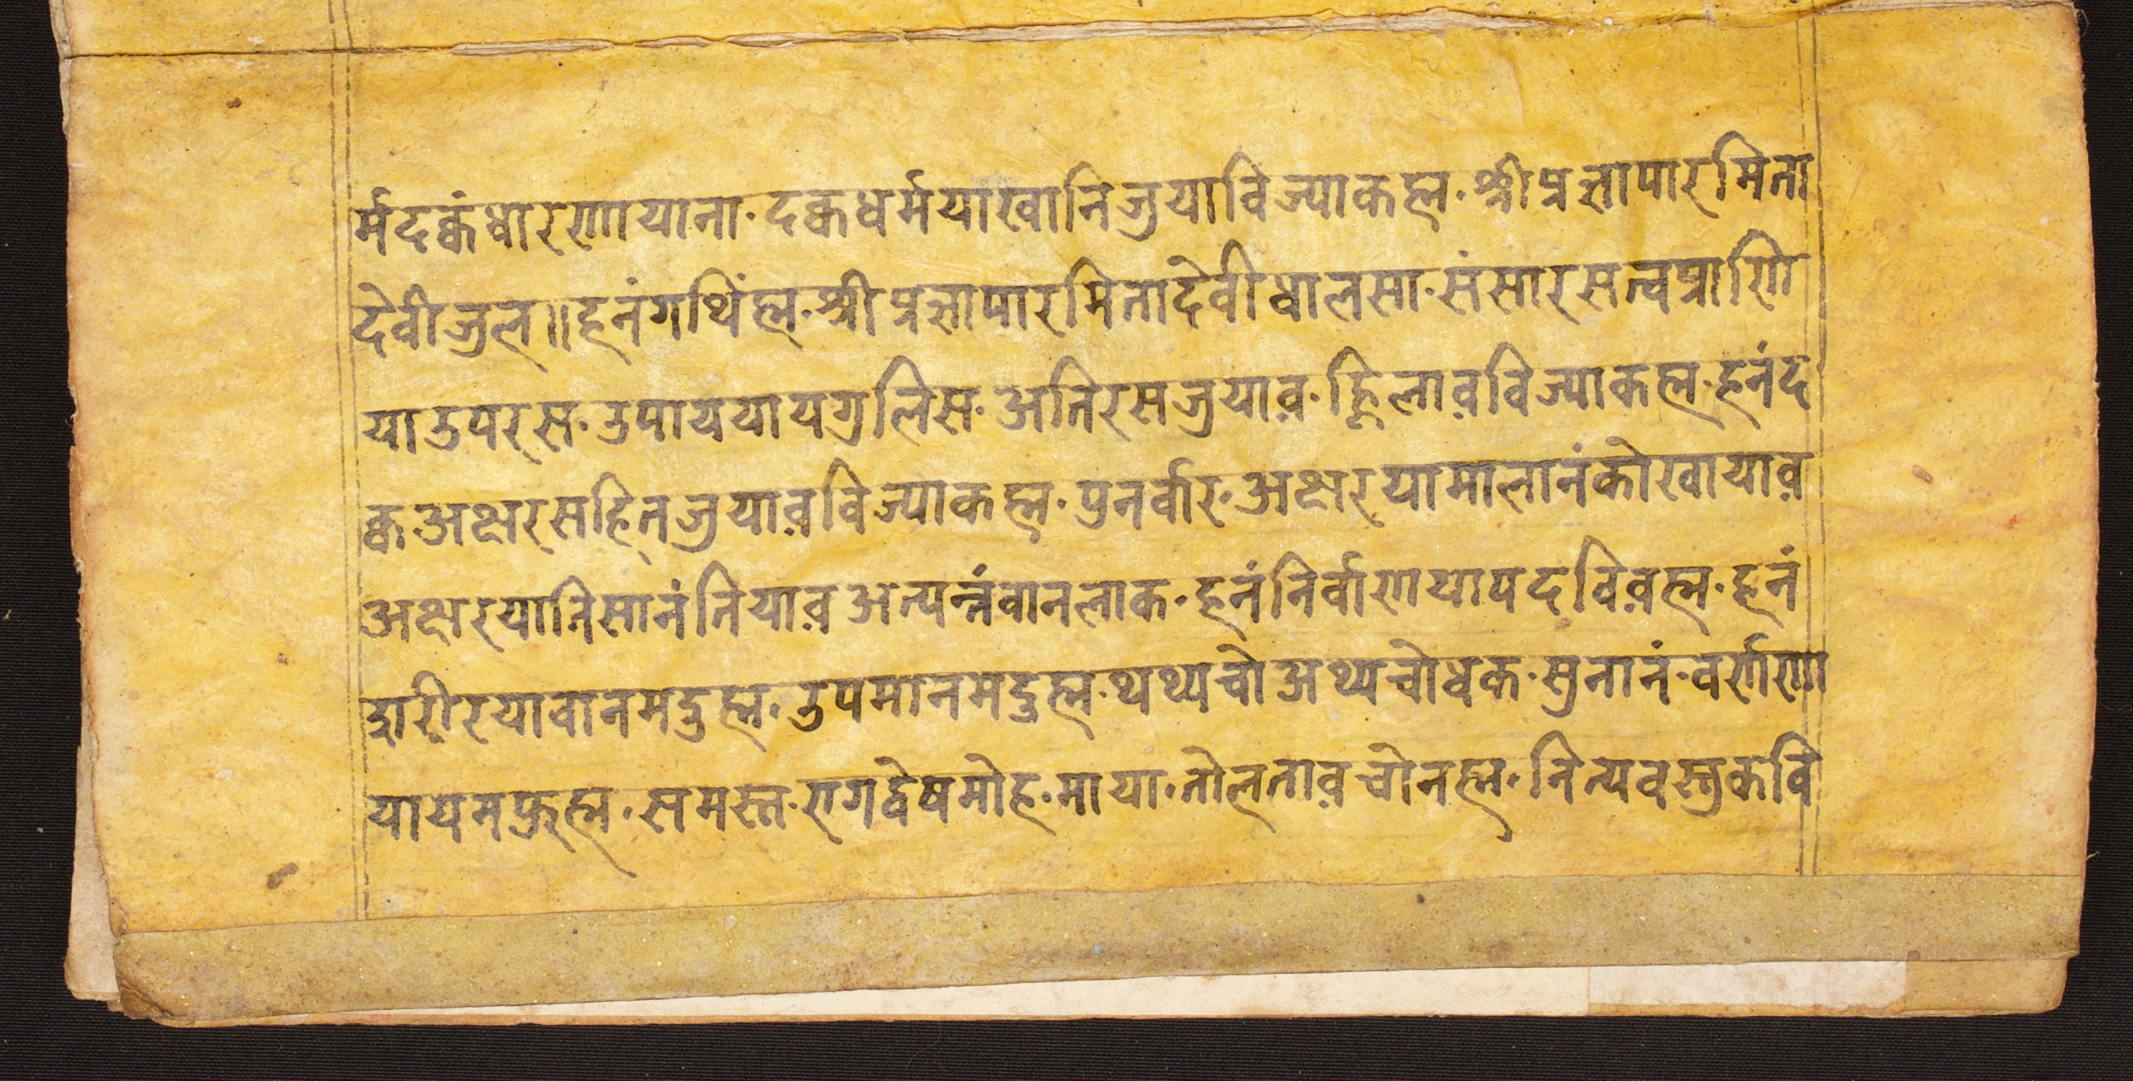 र्मदक्कंधारणायाना·दक्कधर्मयाखानिजुयाविज्याकह्म·श्रीप्रज्ञापारमिता
देवीजुल॥हनंगथिंह्म·श्रीप्रज्ञापारमितादेवीधालसा·संसारसत्वप्राणि
याउपरस·उपाययायगुलिस·अतिरसजुयाव़·ह्लिलाव़विज्याकह्म·हनंद
क्कअक्षरसहितजुयाव़विज्याकह्म·पुनर्वार·अक्षरयामालानंकोखायाव़
अक्षरयातिसानंतियाव़अत्यन्तंवानलाक·हनंनिर्वाणयापदविव़ह्म·हनं
शरीरयावानमदुह्म·उपमानमदुह्म·थथ्यचोअथ्यचोधक·सुनानं·वर्णणा
यायमफुह्म·समस्त·रागद्वेषमोह·माया·तोलताव़चोनह्म·नित्यवस्तुकवि